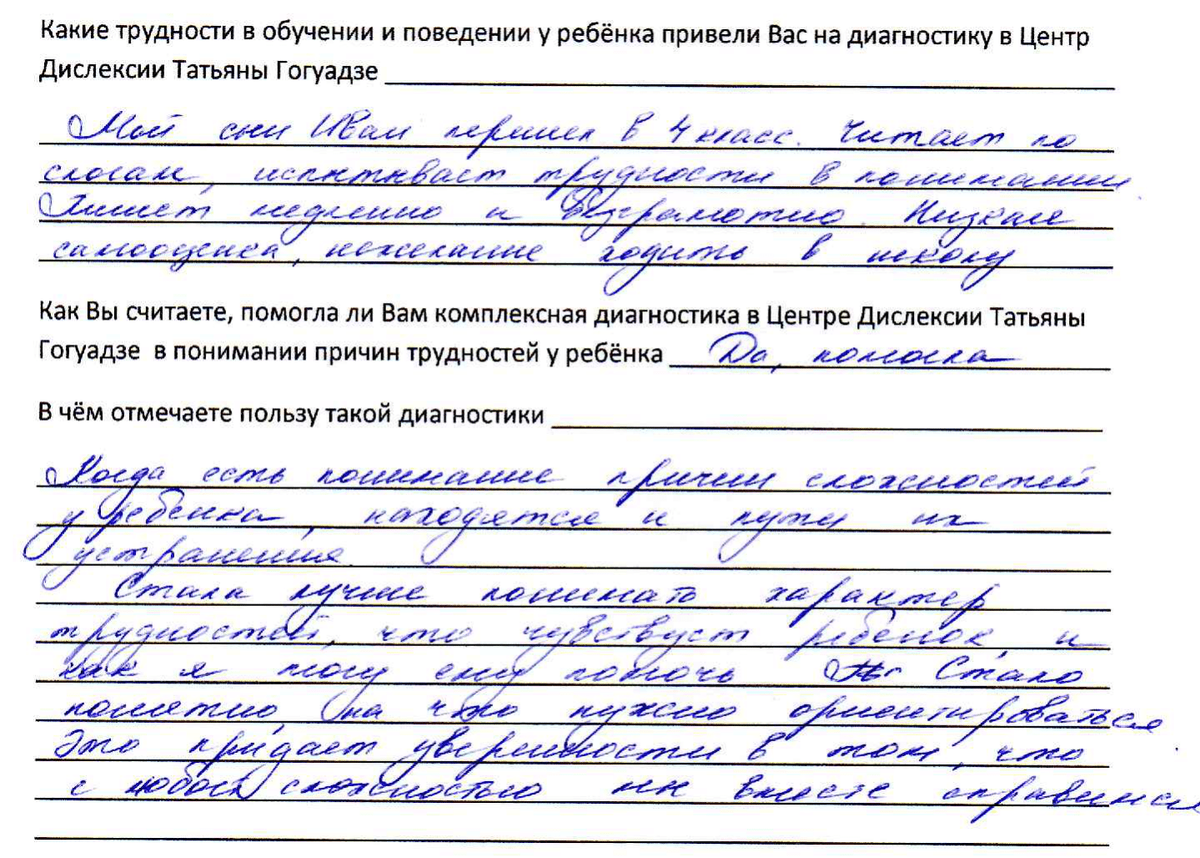 Какие трудности в обучении и поведении у ребёнка привели Вас на диагностику в Центр
Дислексии Татьяны Гогуадзе
Мой сын Иван перешел в 4 класс. Читает по
слогам, испытывает трудности в понимании.
Пишет медленно и безграмотно. Низкая
самооценка, нежелание ходить в школу
Как Вы считаете, помогла ли Вам комплексная диагностика в Центре Дислексии Татьяны
Гогуадзе в понимании причин трудностей у ребёнка Да, помогла
В чём отмечаете пользу такой диагностики
Когда есть понимание причин сложностей
у ребенка, находятся и пути их
устранения.
Стала лучше понимать характер
трудностей, что чувствует ребенок, и
как я могу ему помочь Стало
понятно, на что нужно ориентироваться.
Это придает уверенности в том, что
с любой сложностью мы вместе справимся